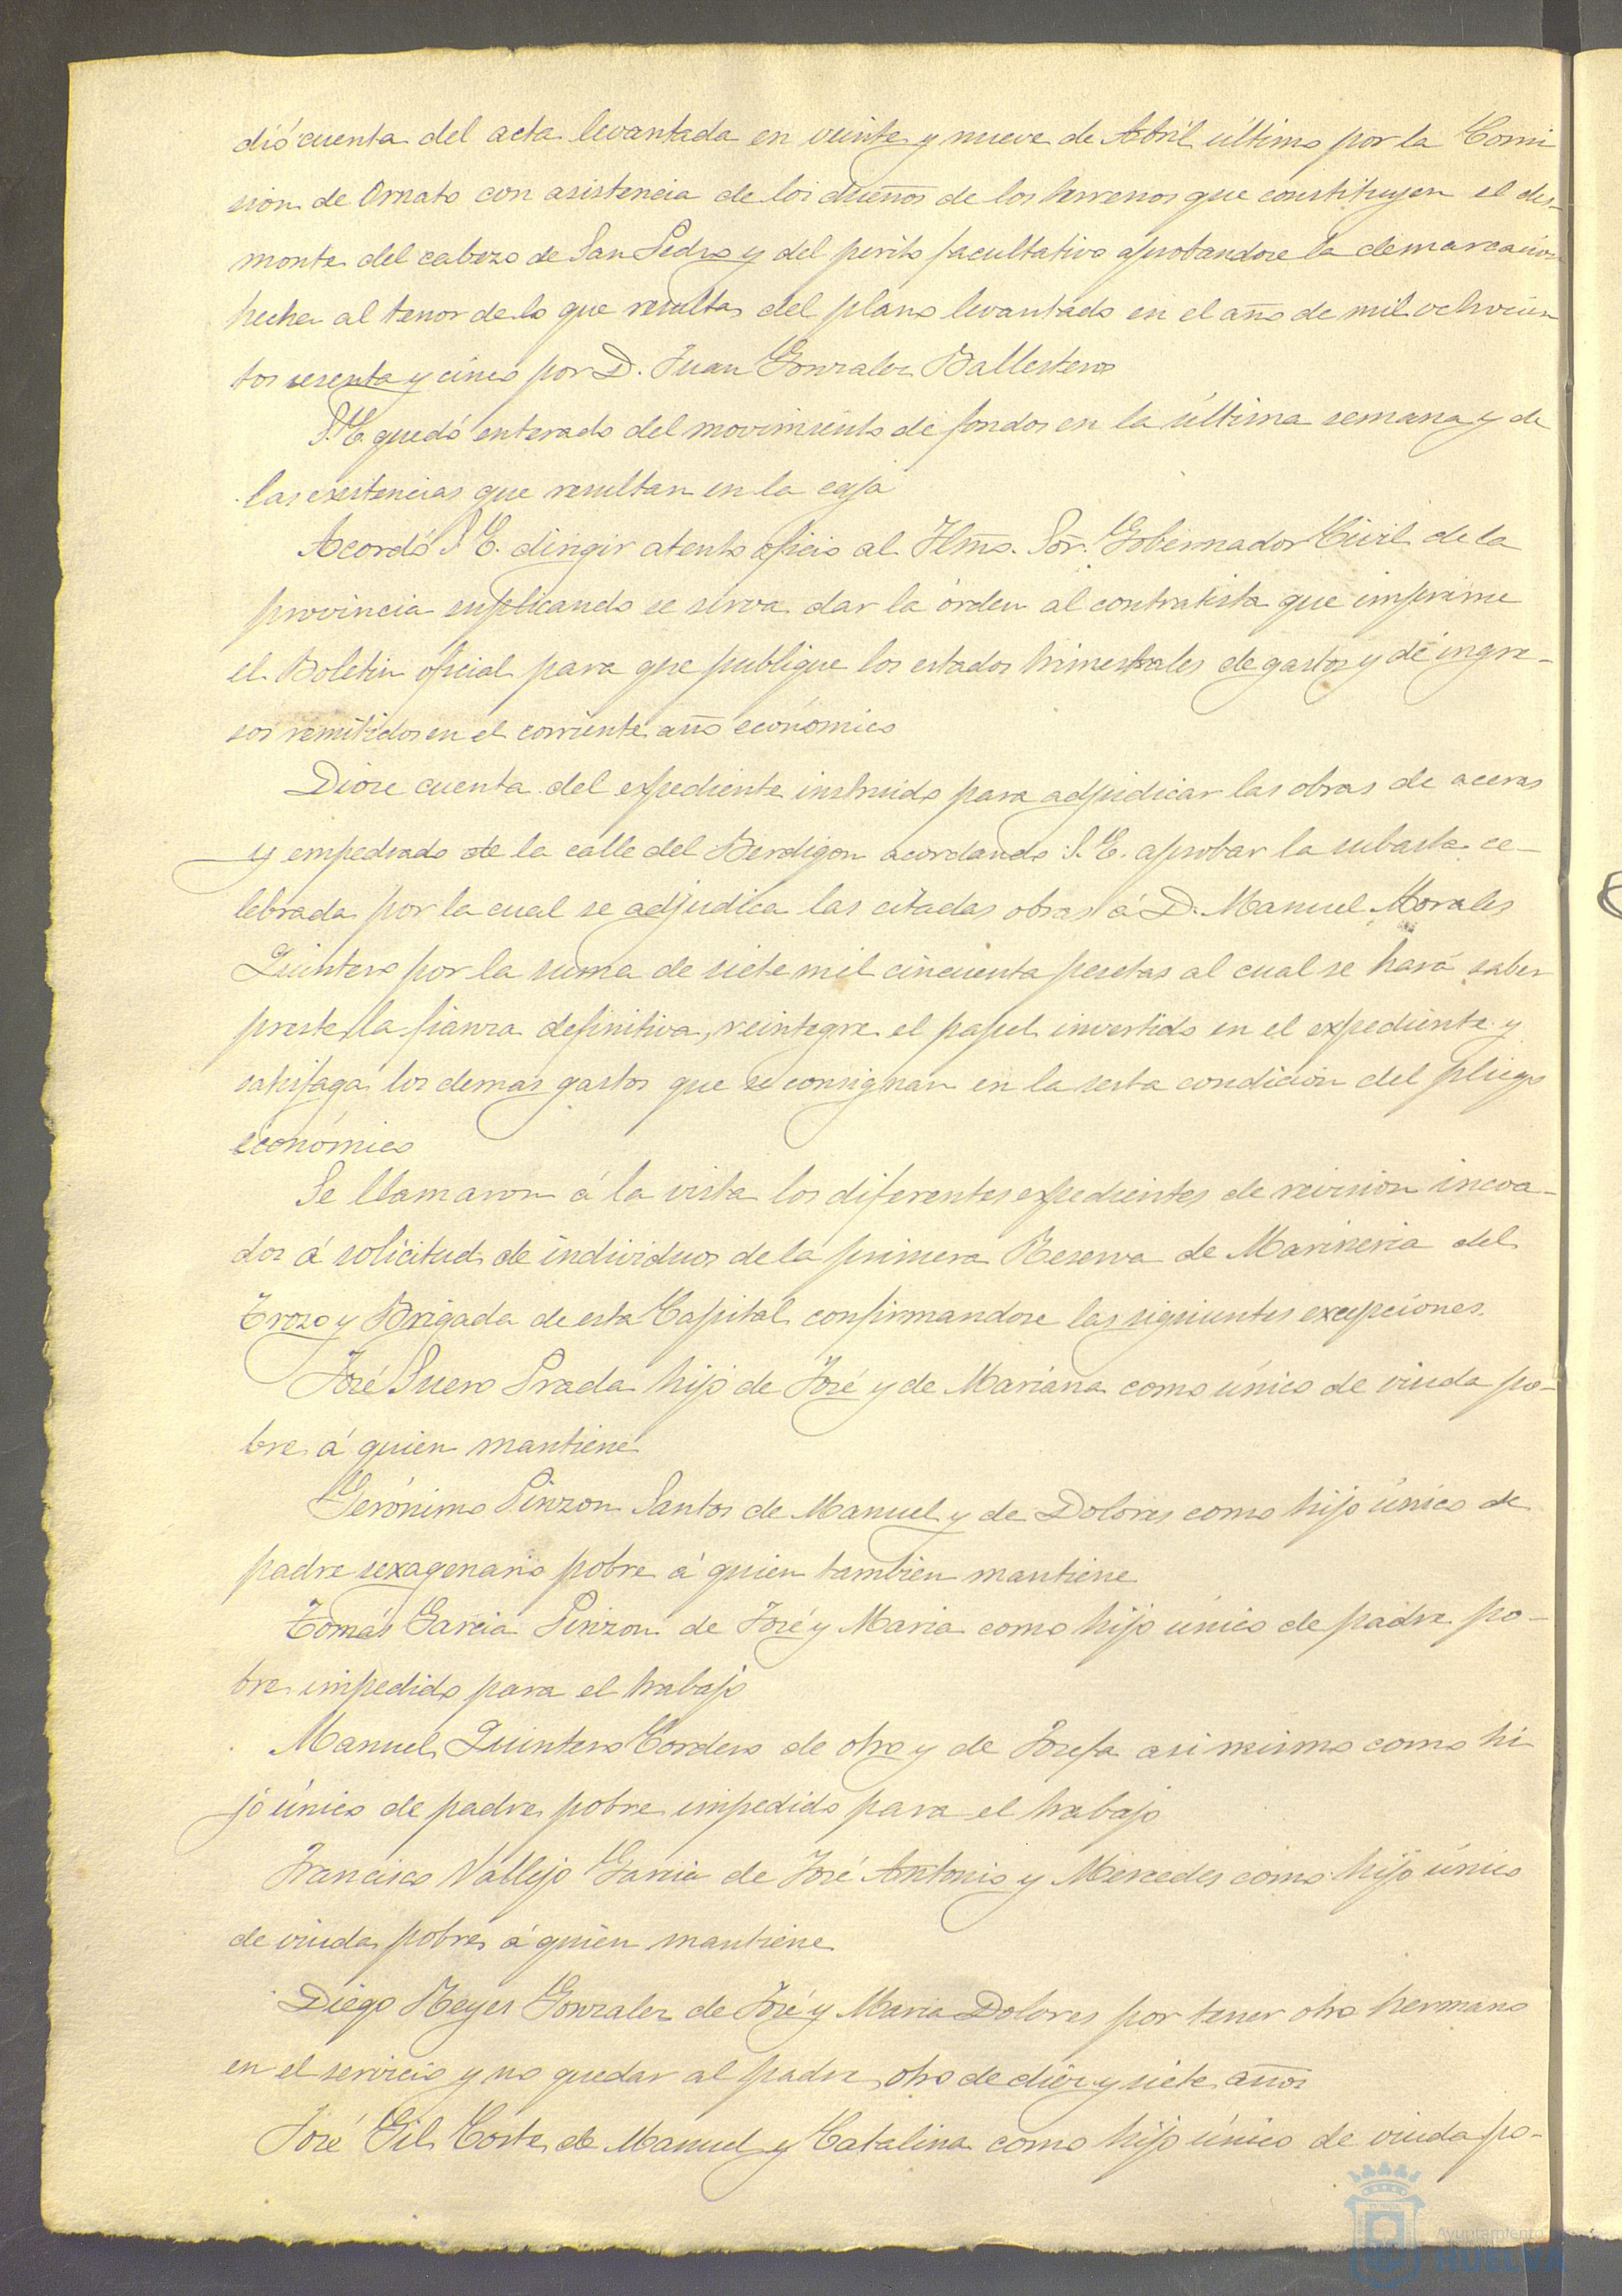 dió cuenta del acta levantada en veinte y nueve de Abril último por la Comi
sion de Ornato con asistencia de los dueños de los terrenos que constituyen el des-
monte del cabezo de San Pedro y del perito facultativo aprobandose la demarcacion
hecha al tenor de lo que resulta del plano levantado en el año de mil ochocien
tos sesenta y cinco por D. Juan Gonzalez Ballesteros
S.E. quedó enterado del movimiento de fondos en la última semana y de
las existencias que resultan en la caja
Acordó S.E. dirigir atento oficio al Ilmo. Sor. Gobernador Civil de la
provincia suplicando se sirva dar la órden al contratista que imprime
el Boletin oficial para que publique los estados trimestrales de gastos y de ingre-
sos remitidos en el corriente año económico
Diose cuenta del expediente instruido para adjudicar las obras de aceras
y empedrado de la calle del Berdigon acordando S.E. aprobar la subasta ce-
lebrada por la cual se adjudica las citadas obras á D. Manuel Morales
Quintero por la suma de siete mil cincuenta pesetas al cual se hará saber
preste la fianza definitiva, reintegre el papel invertido en el expediente y
satisfaga los demas gastos que se consignan en la sesta condicion del pliego
económico
Se llamaron á la vista los diferentes expedientes de revision incoa-
dos á solicitud de individuos de la primera Reserva de Marineria del
Trozo y Brigada de esta Capital confirmandose las siguientes excepciones.
José Suero Prada hijo de José y de Mariana como único de viuda po-
bre á quien mantiene
Gerónimo Pinzon Santos de Manuel y de Dolores como hijo único de
padre sexagenario pobre á quien tambien mantiene
Tomás Garcia Pinzon de José y Maria como hijo único de padre po-
bre impedido para el trabajo
Manuel Quintero Cordero de otro y de Josefa asi mismo como hi
jo único de padre pobre impedido para el trabajo
Francisco Vallejo Garcia de José Antonio y Mercedes como hijo único
de viuda pobre á quien mantiene
Diego Reyes Gonzalez de José y Maria Dolores por tener otro hermano
en el servicio y no quedar al padre otro de diez y siete años
José Gil Corte de Manuel y Catalina como hijo único de viuda po-
Ayuntamiento
HUELVA